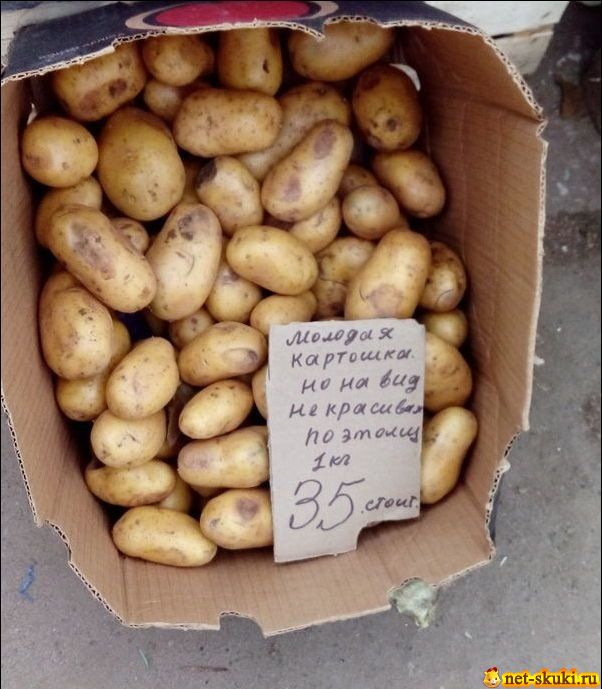 Молодая
картошка.
но на вид
не красивая
поэтому
1кг
35. стоит.
net-skuki.ru